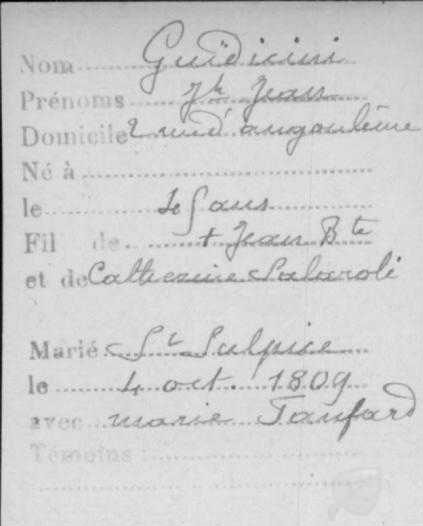 Nom Guidicini
Prénoms Jh Jean
Domicile 2 rue d'angoulême
Né à
le 45 ans
Fil de + Jean Bte
et de Catherine Salaroli
Marié St Sulpice
le 4 oct. 1809
avec marie Taufard
Témoins :